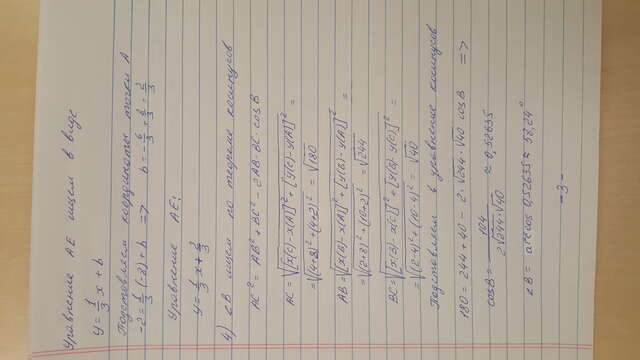 Уравнение AE ищем в виде
y = 1/3 x + b
Подставляем координаты точки A
-2 = 1/3 (-8) + b => b = -6/3 + 8/3 = 2/3
Уравнение AE:
y = 1/3 x + 2/3
4) ∠B ищем по теореме косинусов
AC² = AB² + BC² - 2AB·BC·cosB
AC = √([x(C)-x(A)]² + [y(C)-y(A)]²) =
= √((4+8)² + (4+2)²) = √180
AB = √([x(B)-x(A)]² + [y(B)-y(A)]²) =
= √((2+8)² + (10+2)²) = √244
BC = √([x(B)-x(C)]² + [y(B)-y(C)]²) =
= √((2-4)² + (10-4)²) = √40
Подставляем в уравнение косинусов
180 = 244 + 40 - 2·√244·√40 cosB =>
cosB = 104/(2√244·√40) ≈ 0,52635
∠B = arccos 0,52635 ≈ 58,24°
-3-